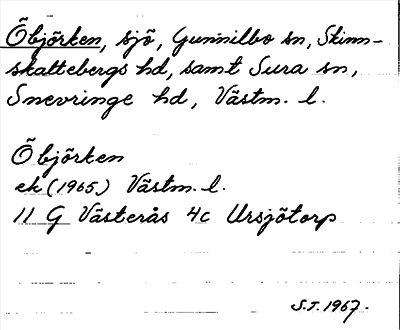 Öbjörken, sjö, Gunnilbo sn, Skinn-
skattebergs hd, samt Sura sn,
Snevringe hd, Västm. l.
Öbjörken
ek (1965) Västm. l.
11 G Västerås 4c Ursjötorp
S.T. 1967.